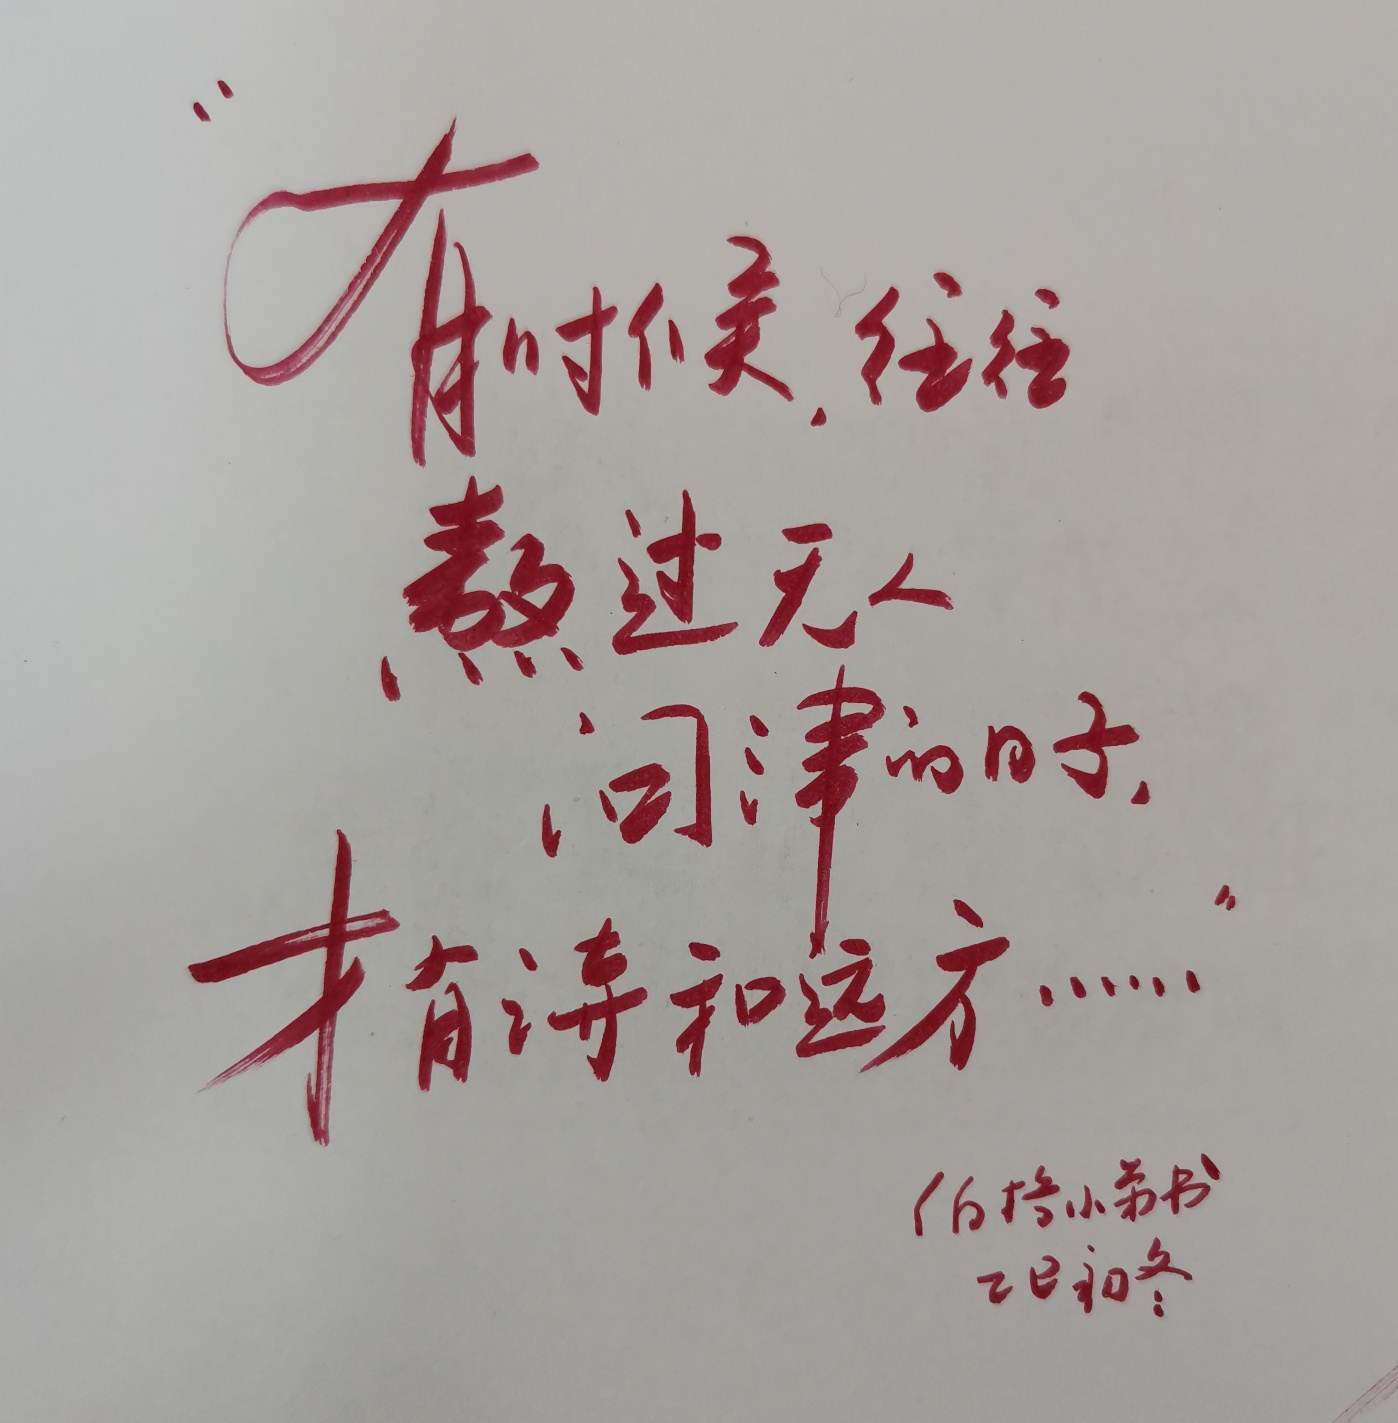 “有时候，往往
熬过无人
问津的日子，
才有诗和远方……”
伯格小弟书
乙巳初冬